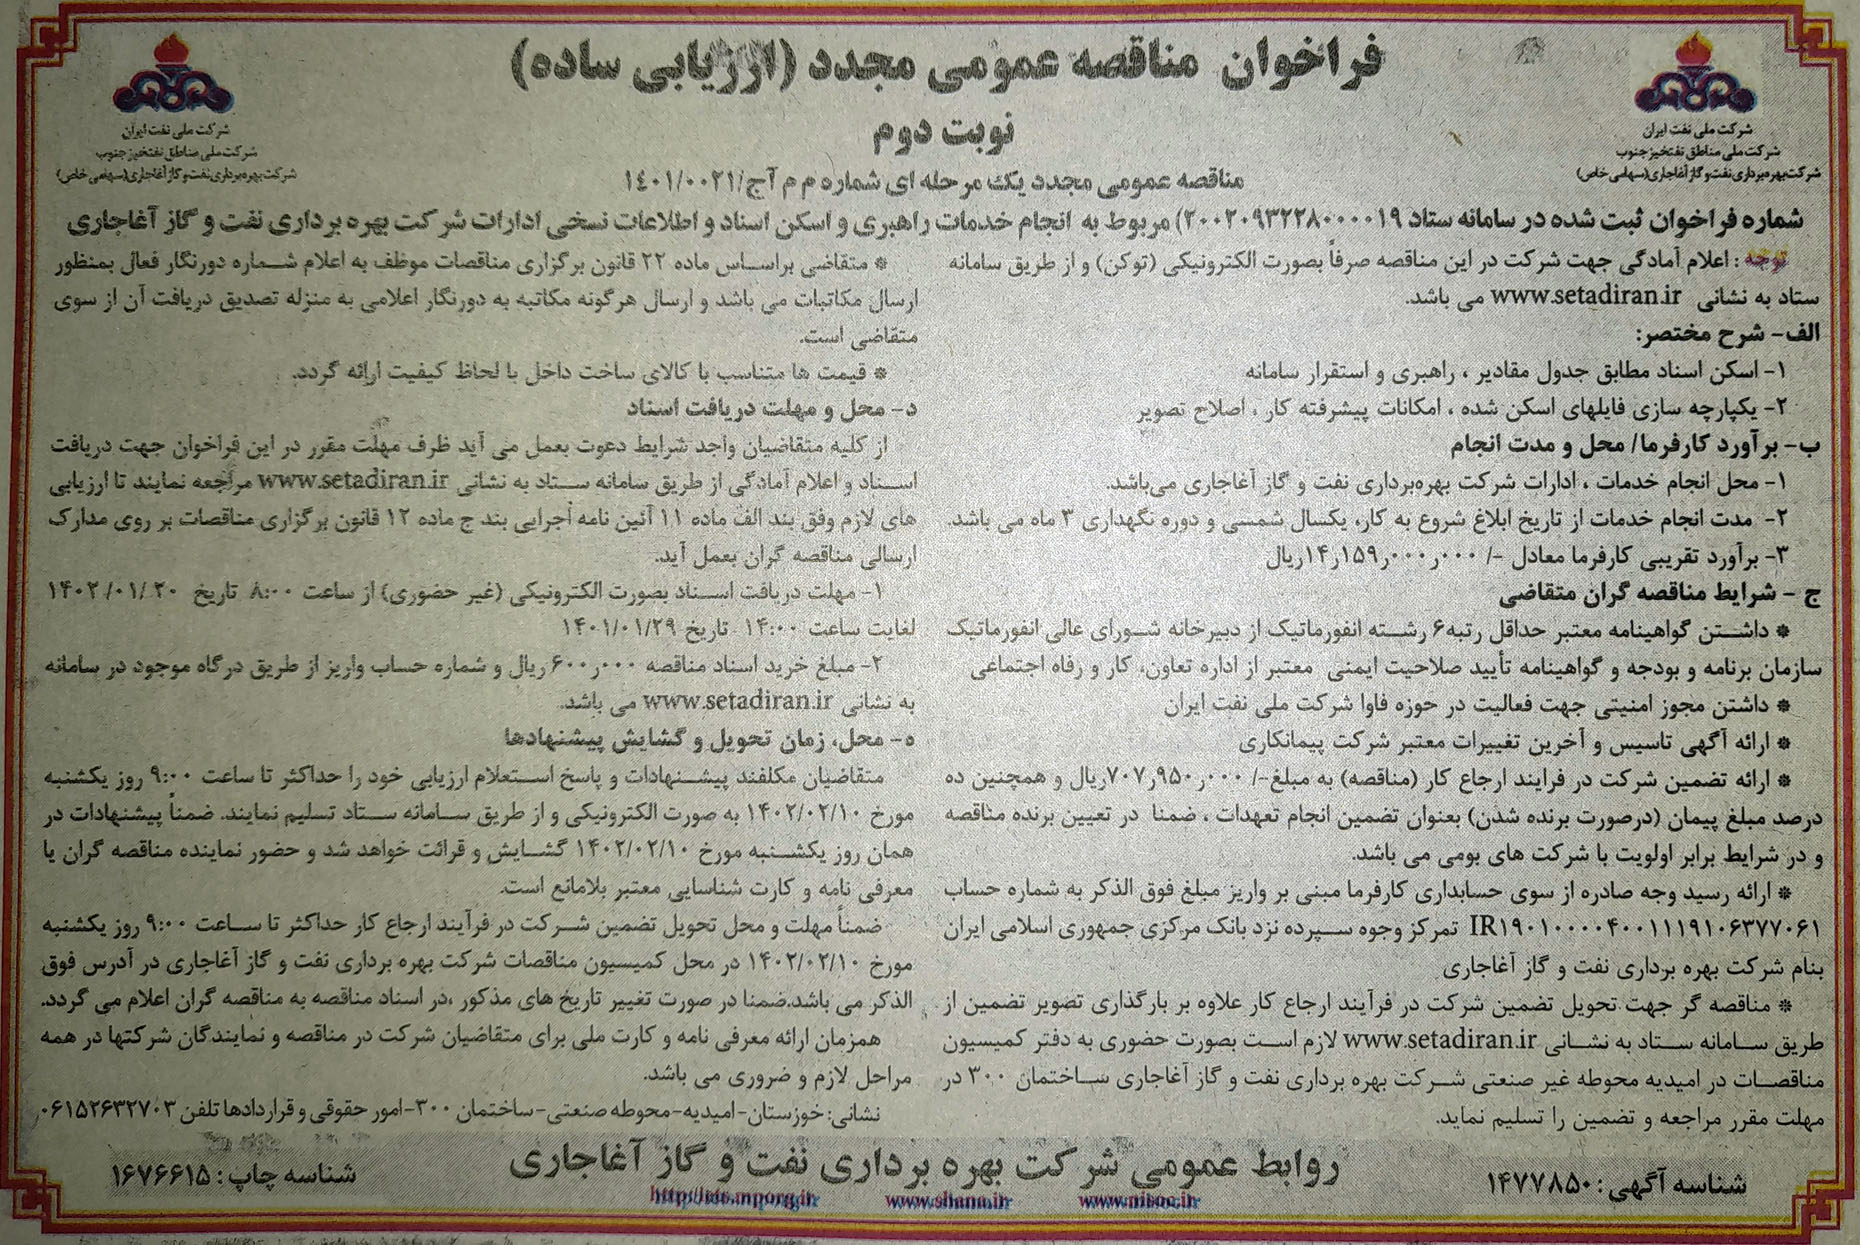 فراخوان مناقصه عمومی مجدد (ارزیابی ساده)
نوبت دوم
شرکت ملی نفت ایران
شرکت ملی مناطق نفتخیز جنوب
شرکت بهره برداری نفت و گاز آغاجاری (سهامی خاص)
شرکت ملی نفت ایران
شرکت ملی مناطق نفتخیز جنوب
شرکت بهره برداری نفت و گاز آغاجاری (سهامی خاص)
مناقصه عمومی مجدد یک مرحله ای شماره م م آج/۱۴۰۱/۰۰۲۱
شماره فراخوان ثبت شده در سامانه ستاد ۲۰۰۲۰۹۳۲۲۸۰۰۰۰۱۹) مربوط به انجام خدمات راهبری و اسکن اسناد و اطلاعات نسخی ادارات شرکت بهره برداری نفت و گاز آغاجاری
توجه : اعلام آمادگی جهت شرکت در این مناقصه صرفاً بصورت الکترونیکی (توکن) و از طریق سامانه
ستاد به نشانی www.setadiran.ir می باشد.
الف- شرح مختصر:
۱- اسکن اسناد مطابق جدول مقادیر ، راهبری و استقرار سامانه
۲- یکپارچه سازی فایلهای اسکن شده ، امکانات پیشرفته کار ، اصلاح تصویر
ب- برآورد کارفرما/ محل و مدت انجام
۱- محل انجام خدمات ، ادارات شرکت بهره‌برداری نفت و گاز آغاجاری می‌باشد.
۲- مدت انجام خدمات از تاریخ ابلاغ شروع به کار، یکسال شمسی و دوره نگهداری ۳ ماه می باشد.
۳- برآورد تقریبی کارفرما معادل -/ ۱۴٫۱۵۹٫۰۰۰٫۰۰۰ریال
ج - شرایط مناقصه گران متقاضی
* داشتن گواهینامه معتبر حداقل رتبه۶ رشته انفورماتیک از دبیرخانه شورای عالی انفورماتیک
سازمان برنامه و بودجه و گواهینامه تأیید صلاحیت ایمنی معتبر از اداره تعاون، کار و رفاه اجتماعی
* داشتن مجوز امنیتی جهت فعالیت در حوزه فاوا شرکت ملی نفت ایران
* ارائه آگهی تاسیس و آخرین تغییرات معتبر شرکت پیمانکاری
* ارائه تضمین شرکت در فرایند ارجاع کار (مناقصه) به مبلغ-/ ۷۰۷٫۹۵۰٫۰۰۰ریال و همچنین ده
درصد مبلغ پیمان (درصورت برنده شدن) بعنوان تضمین انجام تعهدات ، ضمنا در تعیین برنده مناقصه
و در شرایط برابر اولویت با شرکت های بومی می باشد.
* ارائه رسید وجه صادره از سوی حسابداری کارفرما مبنی بر واریز مبلغ فوق الذکر به شماره حساب
IR۱۹۰۱۰۰۰۰۴۰۰۱۱۱۹۱۰۶۳۷۷۰۶۱ تمرکز وجوه سپرده نزد بانک مرکزی جمهوری اسلامی ایران
بنام شرکت بهره برداری نفت و گاز آغاجاری
* مناقصه گر جهت تحویل تضمین شرکت در فرآیند ارجاع کار علاوه بر بارگذاری تصویر تضمین از
طریق سامانه ستاد به نشانی www.setadiran.ir لازم است بصورت حضوری به دفتر کمیسیون
مناقصات در امیدیه محوطه غیر صنعتی شرکت بهره برداری نفت و گاز آغاجاری ساختمان ۳۰۰ در
مهلت مقرر مراجعه و تضمین را تسلیم نماید.
* متقاضی براساس ماده ۲۲ قانون برگزاری مناقصات موظف به اعلام شماره دورنگار فعال بمنظور
ارسال مکاتبات می باشد و ارسال هرگونه مکاتبه به دورنگار اعلامی به منزله تصدیق دریافت آن از سوی
متقاضی است.
* قیمت ها متناسب با کالای ساخت داخل با لحاظ کیفیت ارائه گردد.
د- محل و مهلت دریافت اسناد
از کلیه متقاضیان واجد شرایط دعوت بعمل می آید ظرف مهلت مقرر در این فراخوان جهت دریافت
اسناد و اعلام آمادگی از طریق سامانه ستاد به نشانی www.setadiran.ir مراجعه نمایند تا ارزیابی
های لازم وفق بند الف ماده ۱۱ آئین نامه اجرایی بند ج ماده ۱۲ قانون برگزاری مناقصات بر روی مدارک
ارسالی مناقصه گران بعمل آید.
۱- مهلت دریافت اسناد بصورت الکترونیکی (غیر حضوری) از ساعت ۸:۰۰ تاریخ ۱۴۰۲/۰۱/۲۰
لغایت ساعت ۱۴:۰۰ تاریخ ۱۴۰۱/۰۱/۲۹
۲- مبلغ خرید اسناد مناقصه ۶۰۰٫۰۰۰ ریال و شماره حساب واریز از طریق درگاه موجود در سامانه
به نشانی www.setadiran.ir می باشد.
ه- محل، زمان تحویل و گشایش پیشنهادها
متقاضیان مکلفند پیشنهادات و پاسخ استعلام ارزیابی خود را حداکثر تا ساعت ۹:۰۰ روز یکشنبه
مورخ ۱۴۰۲/۰۲/۱۰ به صورت الکترونیکی و از طریق سامانه ستاد تسلیم نمایند. ضمناً پیشنهادات در
همان روز یکشنبه مورخ ۱۴۰۲/۰۲/۱۰ گشایش و قرائت خواهد شد و حضور نماینده مناقصه گران یا
معرفی نامه و کارت شناسایی معتبر بلامانع است.
ضمناً مهلت و محل تحویل تضمین شرکت در فرآیند ارجاع کار حداکثر تا ساعت ۹:۰۰ روز یکشنبه
مورخ ۱۴۰۲/۰۲/۱۰ در محل کمیسیون مناقصات شرکت بهره برداری نفت و گاز آغاجاری در آدرس فوق
الذکر می باشد.ضمنا در صورت تغییر تاریخ های مذکور ،در اسناد مناقصه به مناقصه گران اعلام می گردد.
همزمان ارائه معرفی نامه و کارت ملی برای متقاضیان شرکت در مناقصه و نمایندگان شرکتها در همه
مراحل لازم و ضروری می باشد.
نشانی: خوزستان-امیدیه-محوطه صنعتی-ساختمان ۳۰۰-امور حقوقی و قراردادها تلفن ۰۶۱۵۲۶۳۲۷۰۳
روابط عمومی شرکت بهره برداری نفت و گاز آغاجاری
شناسه آگهی : ۱۴۷۷۸۵۰
شناسه چاپ : ۱۶۷۶۶۱۵
http://iets.mporg.ir www.shana.ir www.nisoc.ir